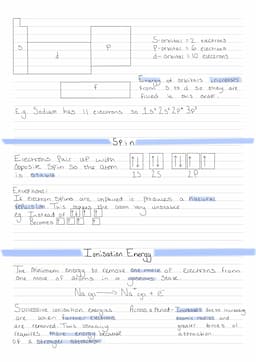 S
d
P
f
S-orbital = 2 electrons
P-orbital = 6 electrons
d-orbital = 10 electrons
Energy of orbitals increases
from S to d so they are
filled in this order.
E.g. Sodium has 11 electrons so 1s² 2s² 2p⁶ 3p¹
Spin
Electrons Pair up with
opposite spin so the atom
is stable
1S 2S 2P
Exceptions:
If electron spins are unpaired it produces a natural
repulsion. This makes the atom very unstable
eg. Instead of
Becomes
Ionisation Energy
The minimum energy to remove one mole of electrons from
one mole of atoms in a gaseous state.
Na(g) → Na⁺(g) + e⁻
Successive ionisation energies
are when further electrons
are removed. This usually
requires more energy because
of a stronger attraction
Across a Period - Increases due to
atomic radius and
greater force of
attraction